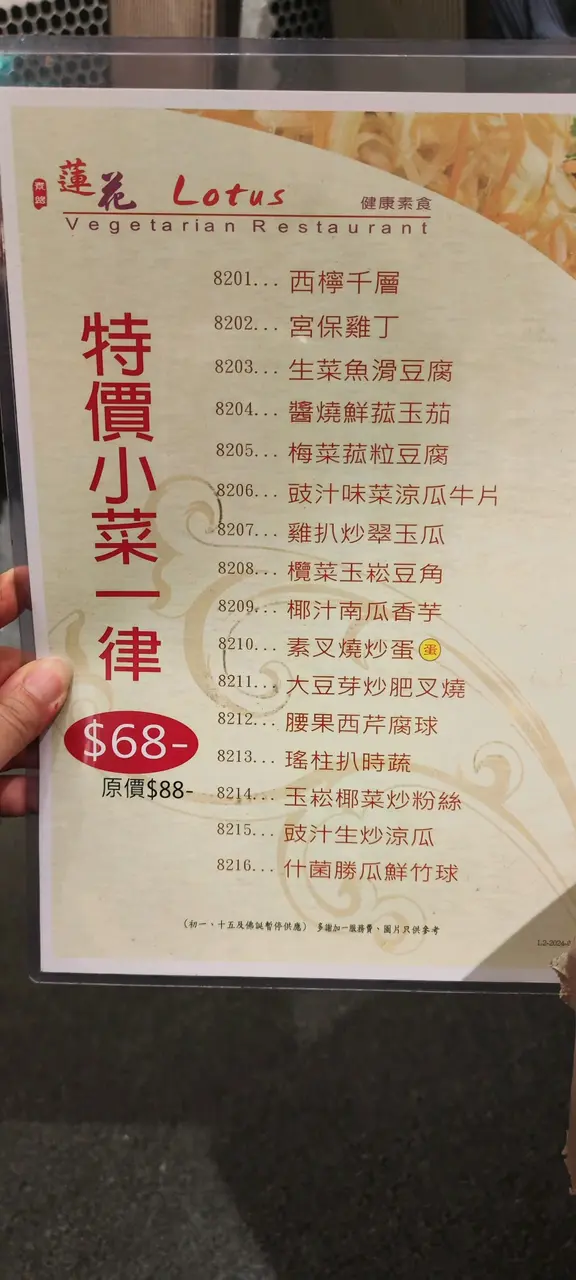 蓮花 Lotus 健康素食
Vegetarian Restaurant
特價小菜一律
$68-
原價$88-
8201... 西檸千層
8202... 宮保雞丁
8203... 生菜魚滑豆腐
8204... 醬燒鮮菰玉茄
8205... 梅菜菰粒豆腐
8206... 豉汁味菜涼瓜牛片
8207... 雞扒炒翠玉瓜
8208... 欖菜玉崧豆角
8209... 椰汁南瓜香芋
8210... 素叉燒炒蛋 蛋
8211... 大豆芽炒肥叉燒
8212... 腰果西芹腐球
8213... 瑤柱扒時蔬
8214... 玉崧椰菜炒粉絲
8215... 豉汁生炒涼瓜
8216... 什菌勝瓜鮮竹球
(初一、十五及佛誕暫停供應) 多謝加一服務費、圖片只供參考